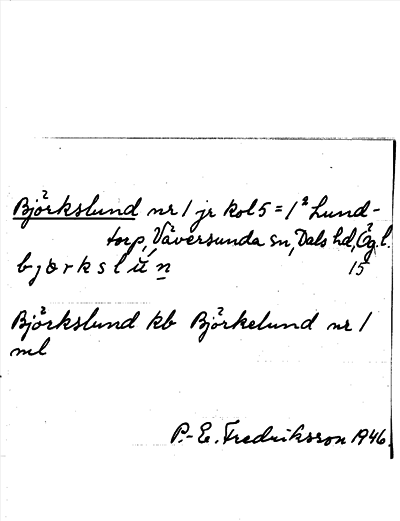 Björkslund nr 1 jr kol 5 = 1² Lund-
torp, Väversunda sn, Dals hd, Ög. l.
bjǫrkslún 15
Björkslund kb Björkelund nr 1
ml
P.-E. Fredriksson 1946.